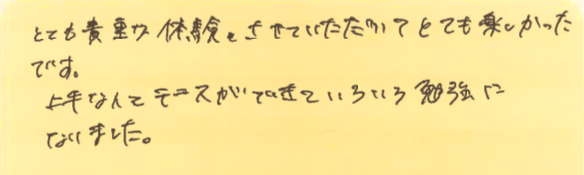 とても貴重な体験をさせていただけてとても楽しかった
です。
上手な人とテニスができていろいろ勉強に
なりました。